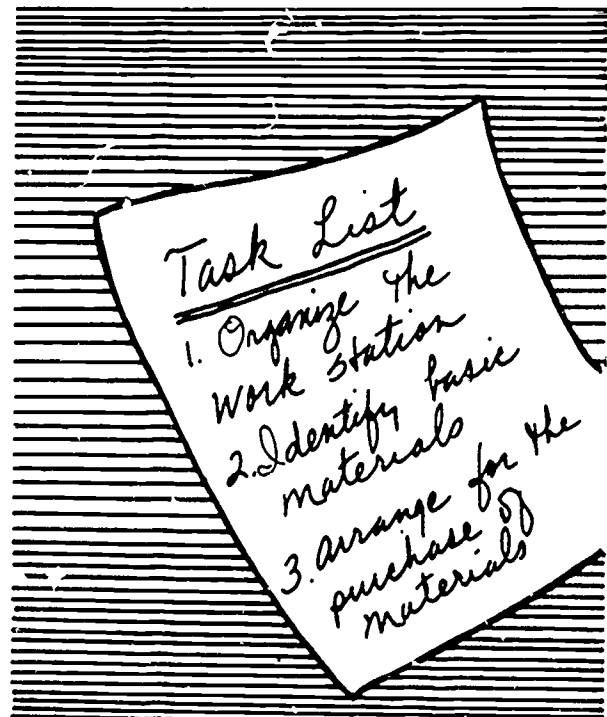 Task List
1. Organize the
Work station
2. Identify basic
materials
3. arrange for the
purchase of
materials